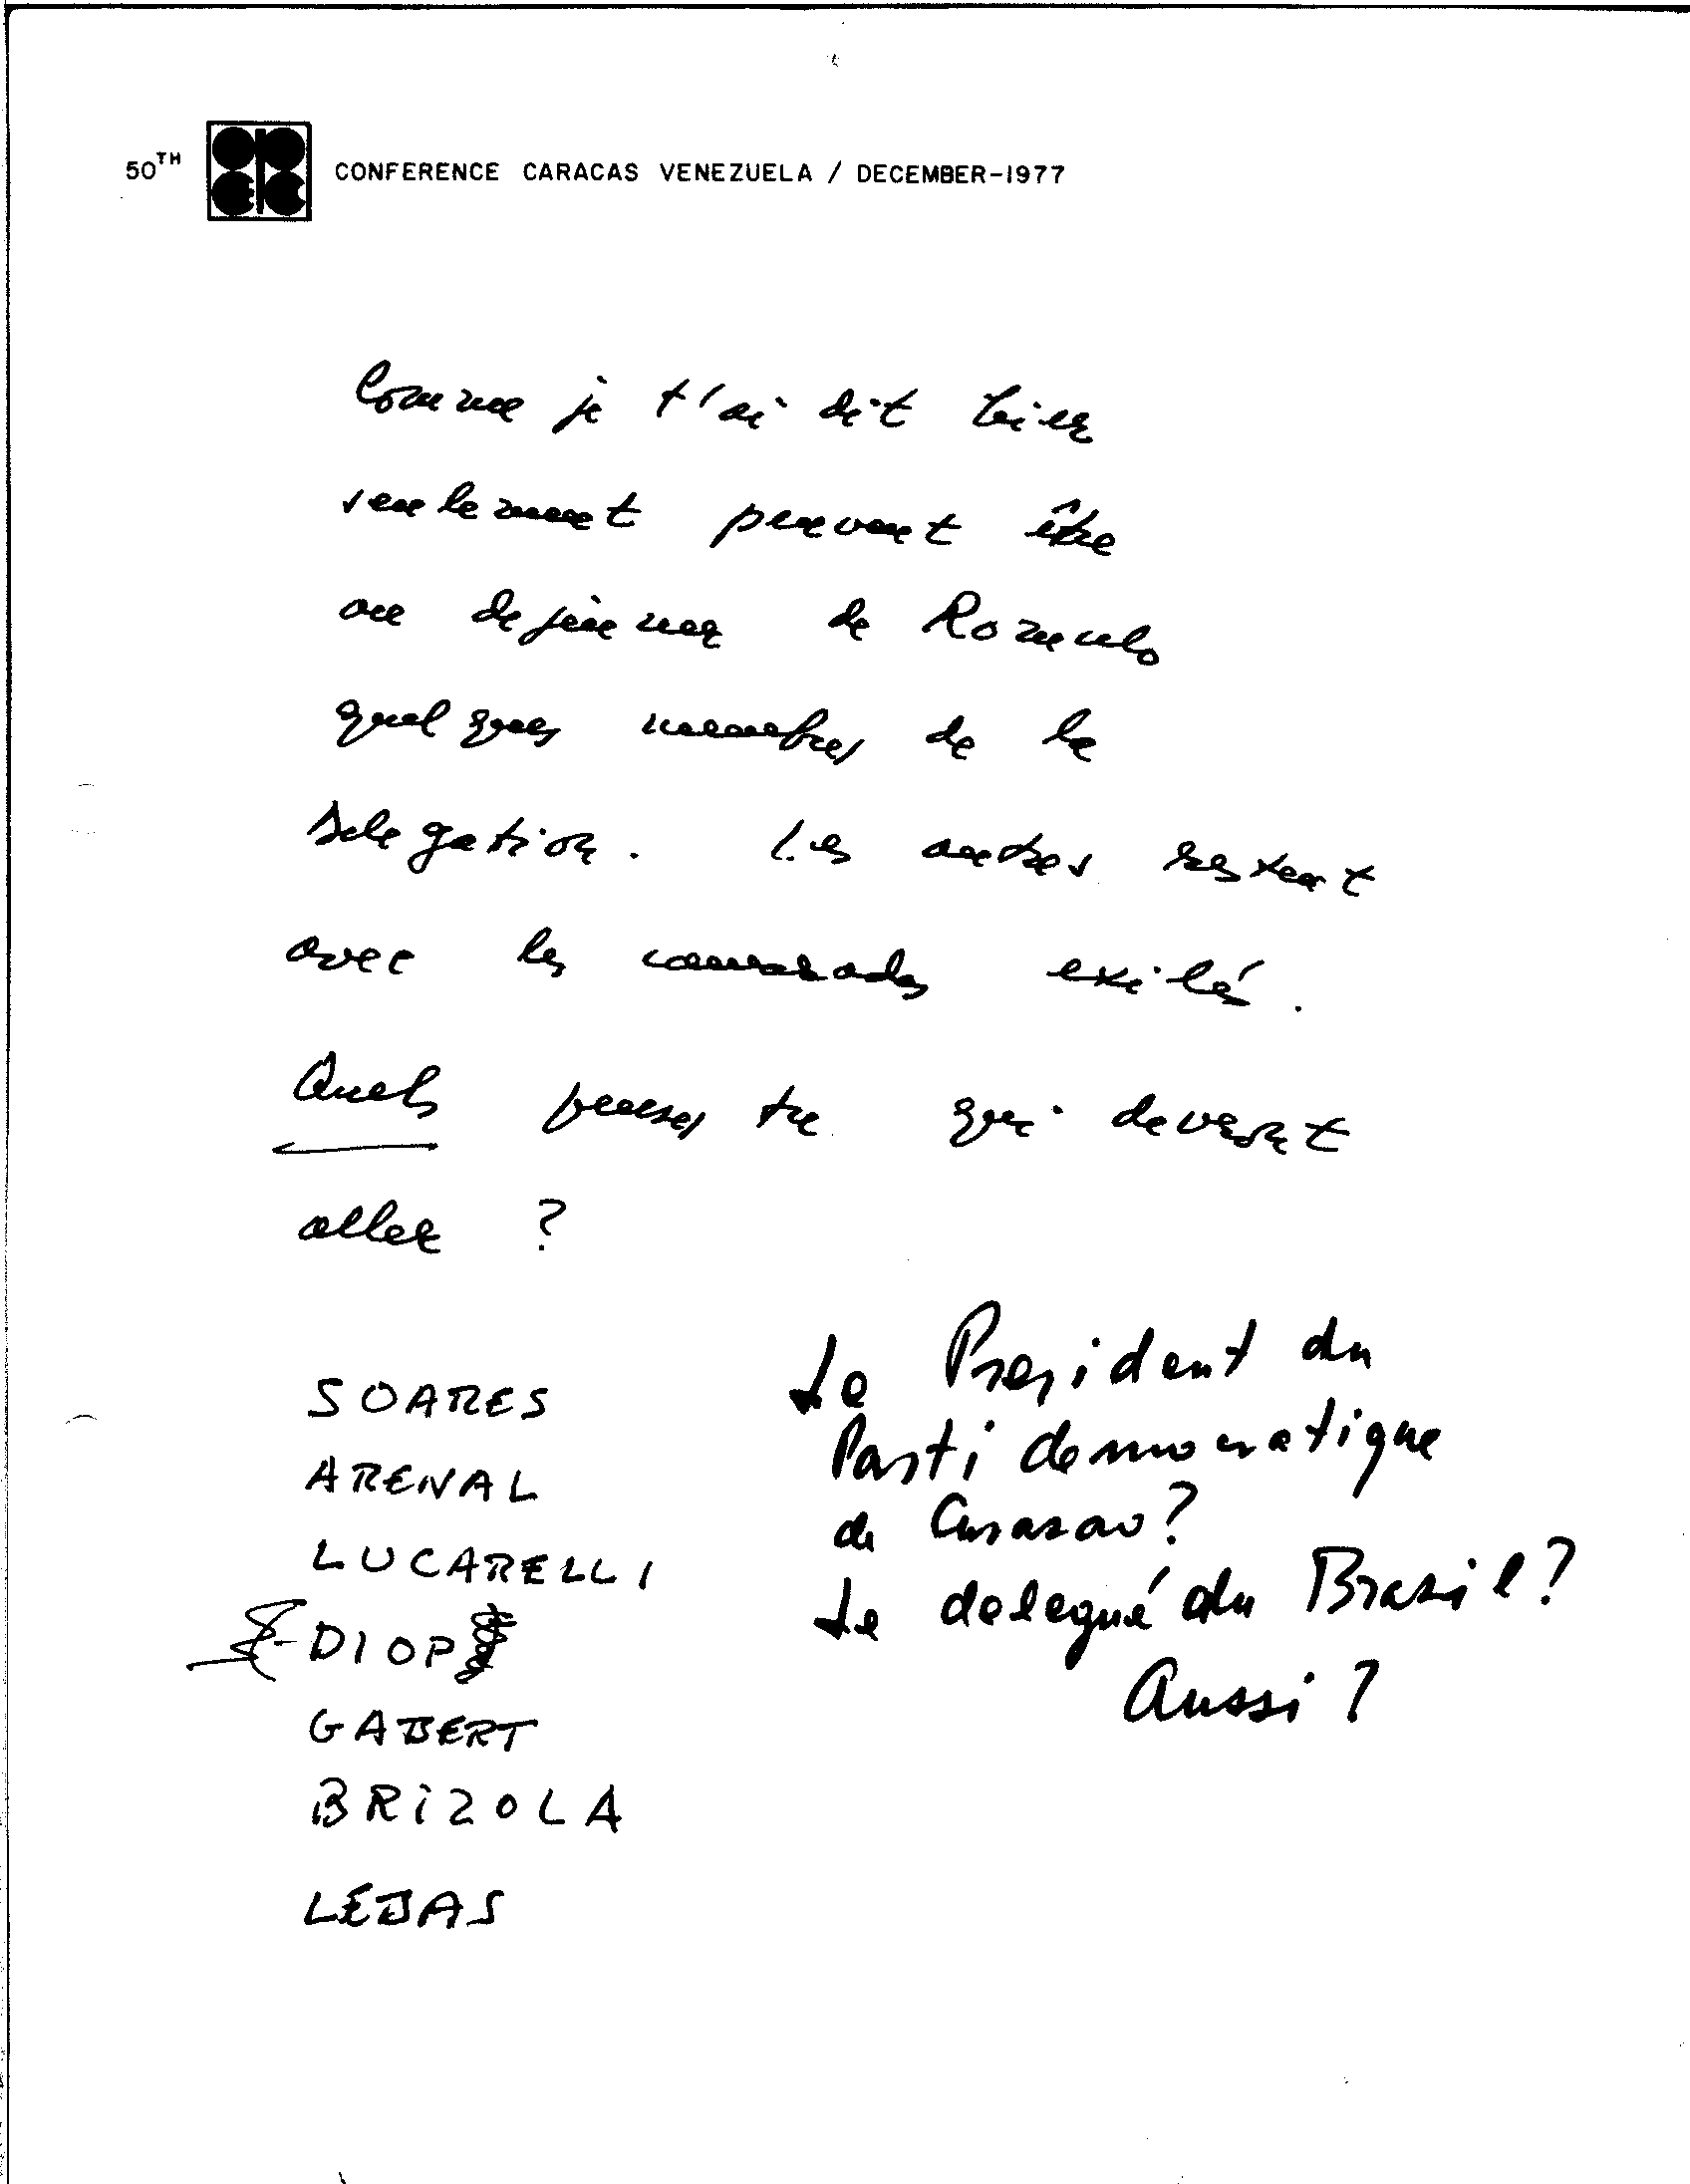 50TH OPEC CONFERENCE CARACAS VENEZUELA / DECEMBER-1977
Comme je t'ai dit hier
seulement peuvent être
au dejeuner de Romulo
quelques membres de la
delegation. Les autres restent
avec les camarades exilés.
Quels penses tu qui devront
aller ?
SOARES
ARENAL
LUCARELLI
DIOP
GABERT
BRIZOLA
LEJAS
Le President du
Parti democratique
de Curasao?
Le delegué du Brasil?
Aussi?